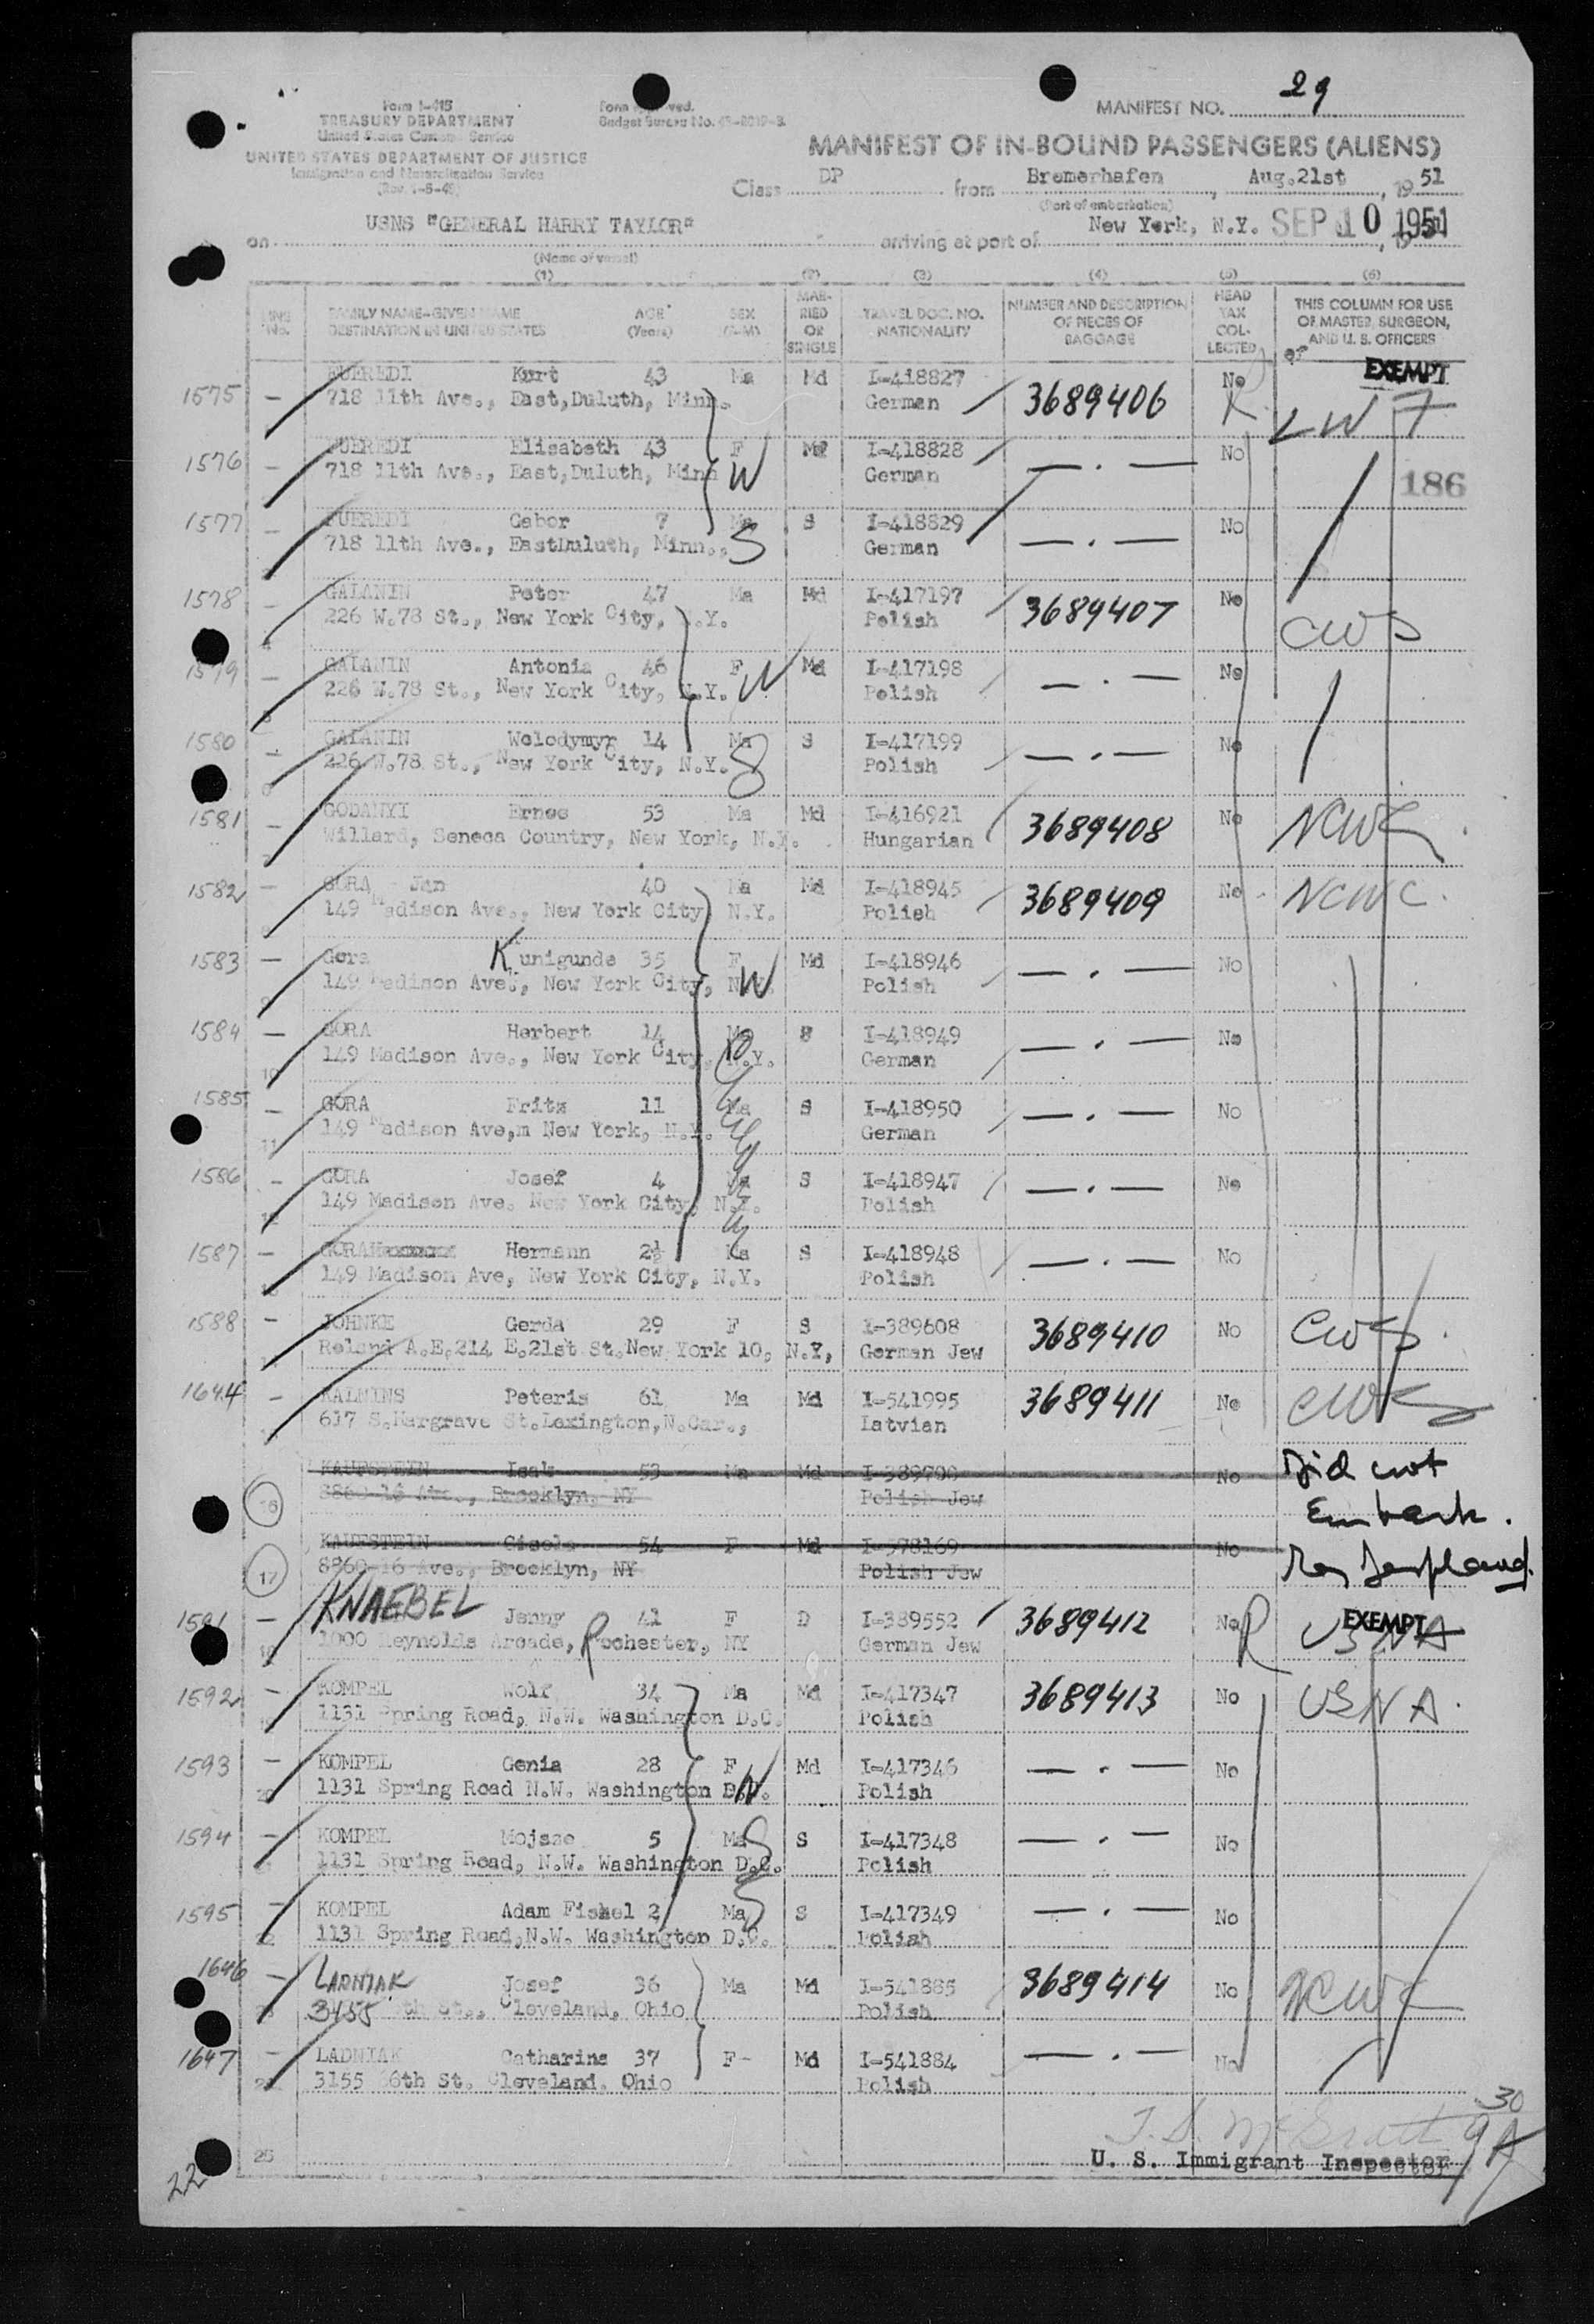 MANIFEST NO. 29
Form I-415
TREASURY DEPARTMENT
United States Customs Service
UNITED STATES DEPARTMENT OF JUSTICE
Immigration and Naturalization Service
Budget Bureau No.
MANIFEST OF IN-BOUND PASSENGERS (ALIENS)
Class DP from Bremerhafen, Aug.21st, 1951
(Port of embarkation)
on USNS "GENERAL HARRY TAYLOR" arriving at port of New York, N.Y. SEP 10 1951
(Name of vessel)
(1) (2) (3) (4) (5) (6)
LINE No. FAMILY NAME-GIVEN NAME DESTINATION IN UNITED STATES AGE (Years) SEX (F-M) MARRIED OR SINGLE TRAVEL DOC. NO. NATIONALITY NUMBER AND DESCRIPTION OF PIECES OF BAGGAGE HEAD TAX COLLECTED THIS COLUMN FOR USE OF MASTER, SURGEON, AND U. S. OFFICERS
1575 FUEREDI Kurt 43 Ma Md I-418827 3689406 No EXEMPT
718 11th Ave., East,Duluth, Minn. German R LW7
1576 FUEREDI Elisabeth 43 F Md I-418828 No
718 11th Ave., East,Duluth, Minn W German — . — 186
1577 FUEREDI Gabor 7 Ma S I-418829 No
718 11th Ave., EastDuluth, Minn., S German — . —
1578 GALANIN Peter 47 Ma Md I-417197 3689407 No
226 W.78 St., New York City, N.Y. Polish CWS
1579 GALANIN Antonia 46 F W Md I-417198 — . — No
226 W.78 St., New York City, N.Y. Polish
1580 GALANIN Wolodymyr 14 Ma S I-417199 — . — No
226 W.78 St., New York City, N.Y. S Polish
1581 GODANYI Ernoe 53 Ma Md I-416921 3689408 No NCWC
Willard, Seneca Country, New York, N.Y. Hungarian
1582 GORA Jan 40 Ma Md I-418945 3689409 No NCWC.
149 Madison Ave., New York City N.Y. Polish
1583 Gora Kunigunde 35 F Md I-418946 — . — No
149 Madison Ave., New York City, N.Y. W Polish
1584 GORA Herbert 14 Ma S I-418949 — . — No
149 Madison Ave., New York City, N.Y. German
1585 GORA Fritz 11 Ma S I-418950 — . — No
149 Madison Ave,m New York, N.Y. German
1586 GORA Josef 4 Ma S I-418947 — . — No
149 Madison Ave. New York City, N.Y. Polish
1587 GORA Hermann 2½ Ma S I-418948 — . — No
149 Madison Ave, New York City, N.Y. Polish
1588 JOHNKE Gerda 29 F S I-389608 3689410 No CWS
Roland A.E.214 E.21st St.New York 10, N.Y, German Jew
1644 KALNINS Peteris 61 Ma Md I-541995 3689411 No CWS
617 S.Hargrave St.Lexington,N.Car., Latvian
16 KAUFSTEIN Isak 53 Ma Md No Did not
8860-16 Ave., Brooklyn, NY Polish Jew Embark.
17 KAUFSTEIN Gisela 54 F Md I-378169 No
8860-16 Ave., Brooklyn, NY Polish Jew
1591 KNAEBEL Jenny 41 F D I-389552 3689412 No R EXEMPT
1000 Reynolds Arcade, Rochester, NY German Jew USNA
1592 KOMPEL Wolf 34 Ma Md I-417347 3689413 No USNA.
1131 Spring Road, N.W. Washington D.C. Polish
1593 KOMPEL Genia 28 F Md I-417346 — . — No
1131 Spring Road N.W. Washington D.C. W Polish
1594 KOMPEL Mojsze 5 Ma S I-417348 — . — No
1131 Spring Road, N.W. Washington D.C. Polish
1595 KOMPEL Adam Fiszel 2 Ma S I-417349 — . — No
1131 Spring Road,N.W. Washington D.C. Polish
1646 LADNIAK Josef 36 Ma Md I-541885 3689414 No NCWC
3155 th St., Cleveland, Ohio Polish
1647 LADNIAK Catharine 37 F- Md I-541884 — . — No
3155 66th St. Cleveland. Ohio Polish
30
25 U. S. Immigrant Inspector
22